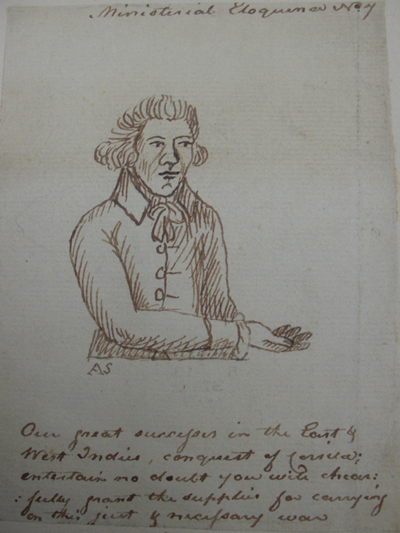 Ministerial Eloquence No 7
AS
Our great successes in the East &
West Indies, conquest of Corsica;
entertain no doubt you will chear:
:fully grant the supplies for carrying
on this just & necessary war